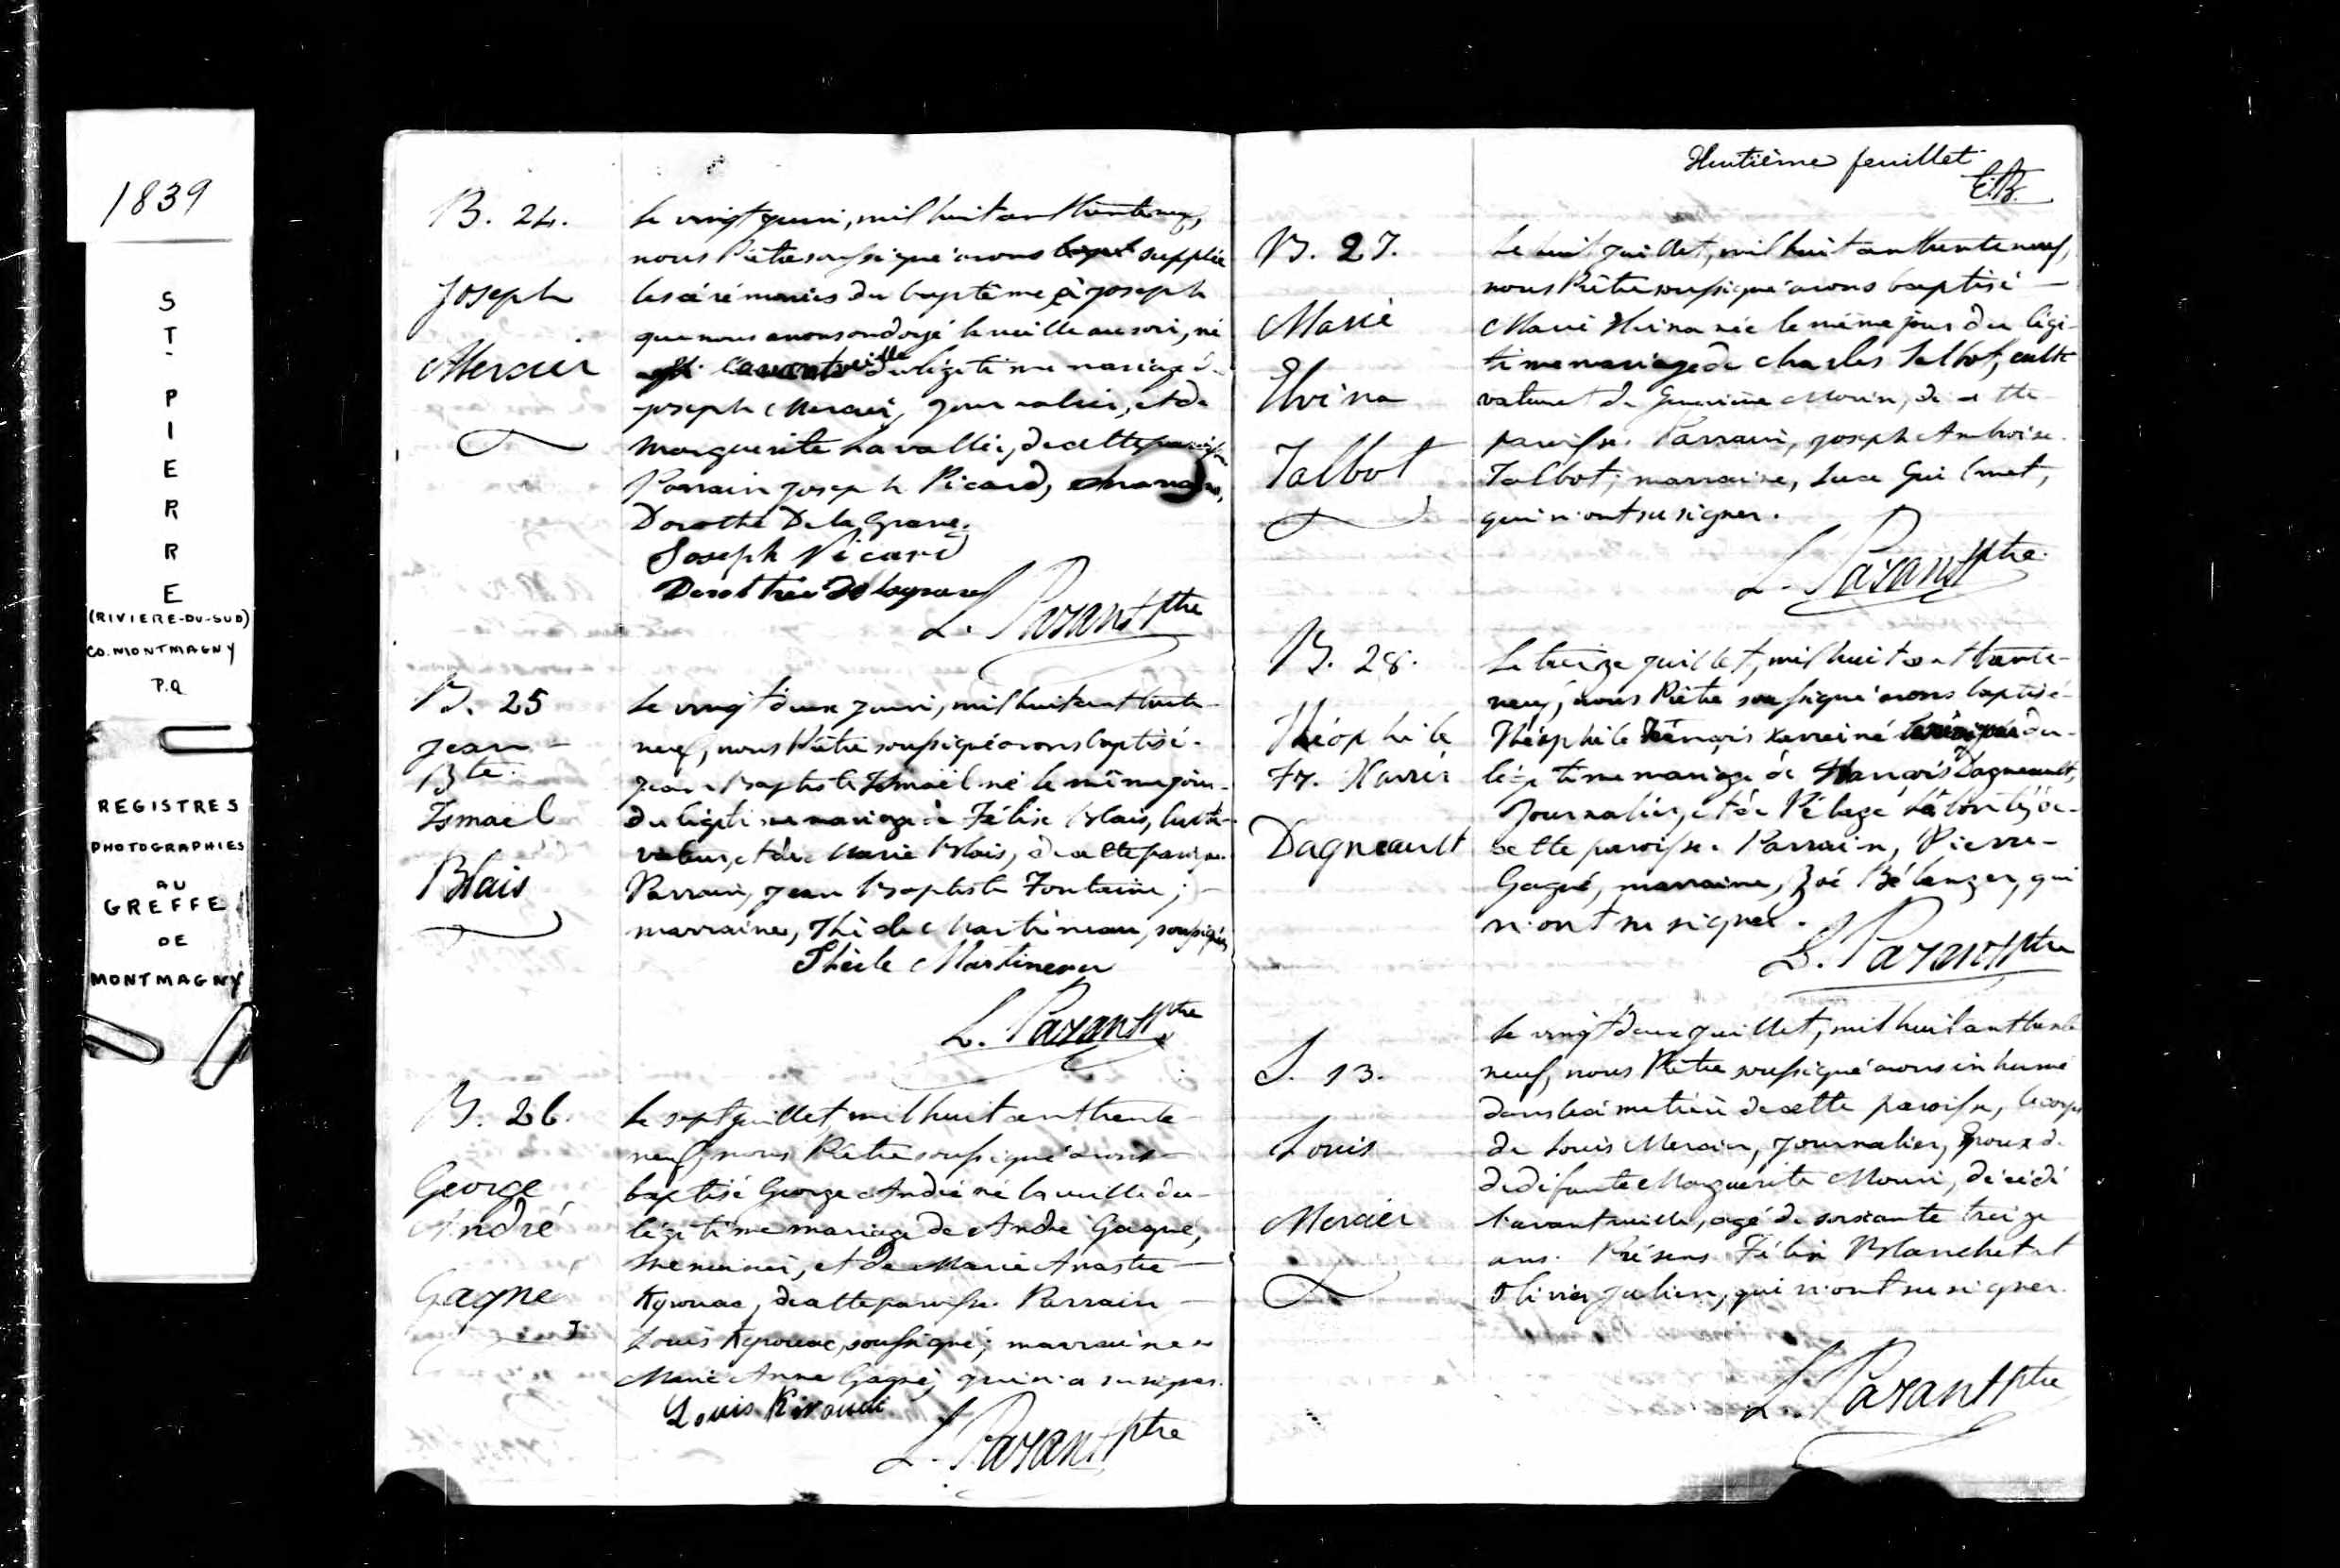 1839
ST-PIERRE
(RIVIERE-DU-SUD)
CO. MONTMAGNY
P.Q
REGISTRES
PHOTOGRAPHIES
AU
GREFFE
DE
MONTMAGNY
B. 24.
Joseph
Mercier
Le vingt juin, mil huit cent trente neuf,
nous Prêtre soussigné avons supplée
les cérémonies du baptême, à Joseph
que nous avons ondoyé la veille au soir, né
l'avant veille du légitime mariage de
Joseph Mercier, journalier, et de
Marguerite Lavallée, de cette paroisse
Parrain Joseph Picard,
Dorothé De la Grave.
Joseph Picard
Dorothée Delagrave
L. Parant Ptre
B. 25
Jean-
Bte.
Ismael
Blais
Le vingt deux juin, mil huit cent trente-
neuf, nous Prêtre soussigné avons baptisé
Jean Baptiste Ismaël né le même jour
du légitime mariage de Félix Blais, culti-
vateur, et de Marie Blais, de cette paroisse.
Parrain, Jean Baptiste Fontaine;
marraine, Thècle Martineau, soussignés
Thècle Martineau
L. Parant Ptre
B. 26.
George
André
Gagné
Le sept juillet, mil huit cent trente
neuf, nous Prêtre soussigné avons
baptisé George André né la veille du
légitime mariage de André Gagné,
menuisier, et de Marie Anastie
Kgrouac, de cette paroisse. Parrain
Louis Kgrouac, soussigné; marraine
Marie Anne Gagné, qui n'a su signer.
Louis Kirouac
L. Parant Ptre
Huitième feuillet
E.B.
B. 27.
Marie
Elvina
Talbot
Le huit juillet, mil huit cent trente neuf,
nous Prêtre soussigné avons baptisé
Marie Elvina née le même jour du légi-
time mariage de Charles Talbot, culti-
vateur et de Geneviève Morin, de cette
paroisse. Parrain, Joseph Ambroise
Talbot; marraine, Luce Guilmet,
qui n'ont su signer.
L. Parant Ptre
B. 28.
Théophile
Fr. Xavier
Dagneault
Le treize juillet, mil huit cent trente-
neuf, nous Prêtre soussigné avons baptisé
Théophile François Xavier né du
légitime mariage de François Dagneault,
journalier, et de Pélage de
cette paroisse. Parrain, Pierre
Gagné, marraine, Zoé Bélanger, qui
n'ont su signer.
L. Parant Ptre
S. 13.
Louis
Mercier
Le vingt deux juillet, mil huit cent trente
neuf, nous Prêtre soussigné avons inhumé
dans le cimetière de cette paroisse, le corps
de Louis Mercier, journalier, Epoux de
de défunte Marguerite Morin, décédé
l'avant veille, agé de soixante treize
ans. Présens Félix Blanchet et
Olivier Julien, qui n'ont su signer.
L. Parant Ptre